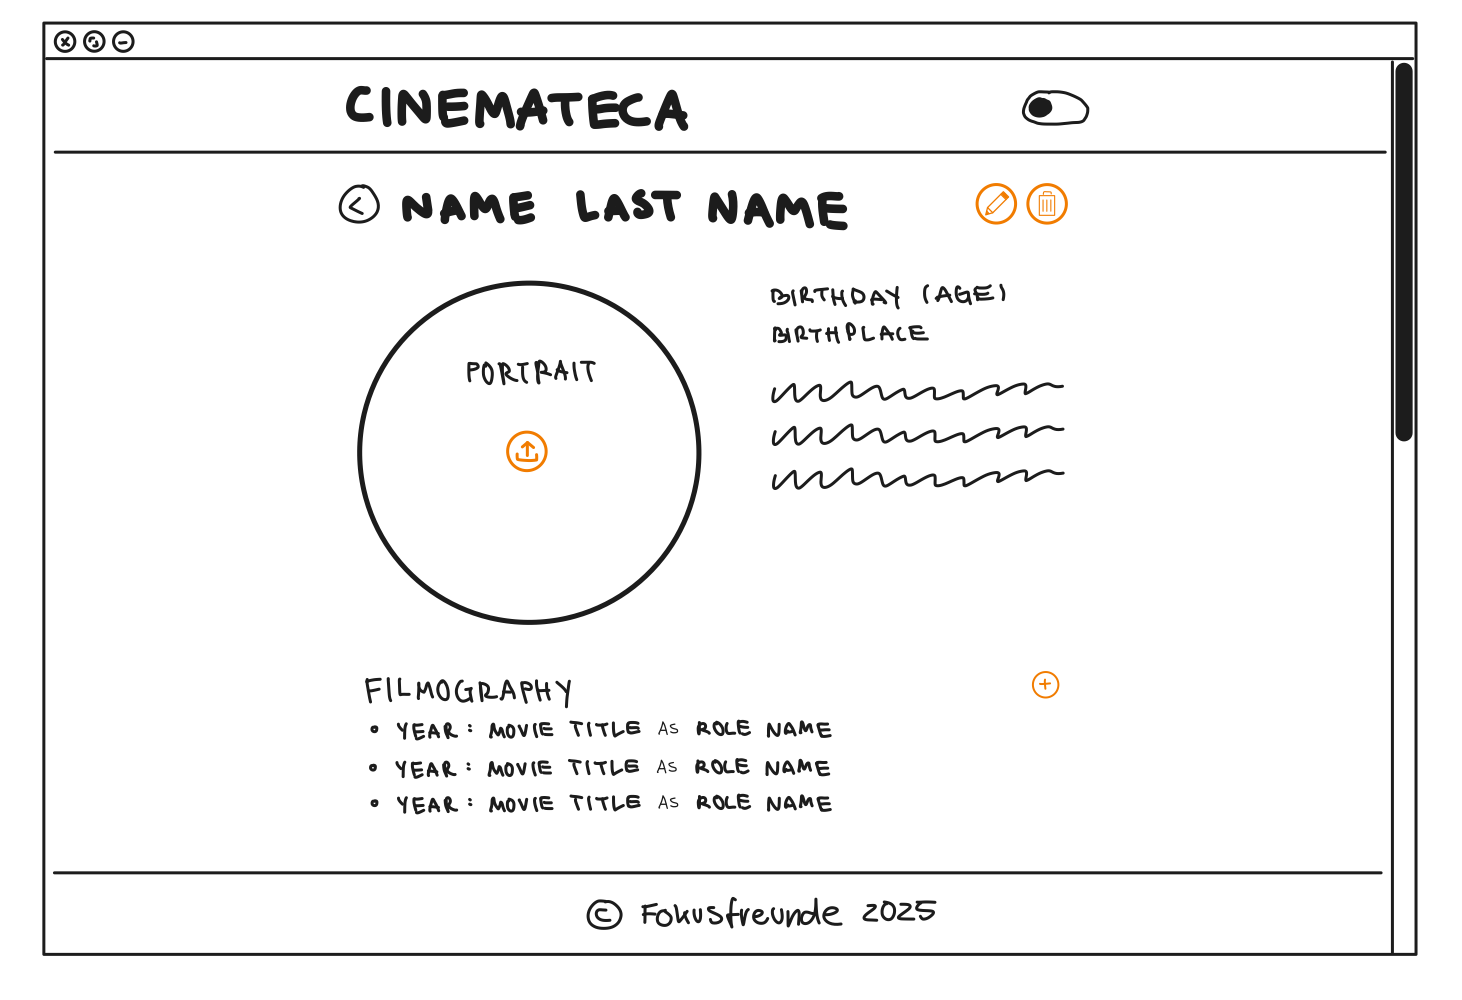 CINEMATECA
NAME LAST NAME
PORTRAIT
BIRTHDAY (AGE)
BIRTHPLACE
FILMOGRAPHY
• YEAR: MOVIE TITLE AS ROLE NAME
• YEAR: MOVIE TITLE AS ROLE NAME
• YEAR: MOVIE TITLE AS ROLE NAME
© Fokusfreunde 2025